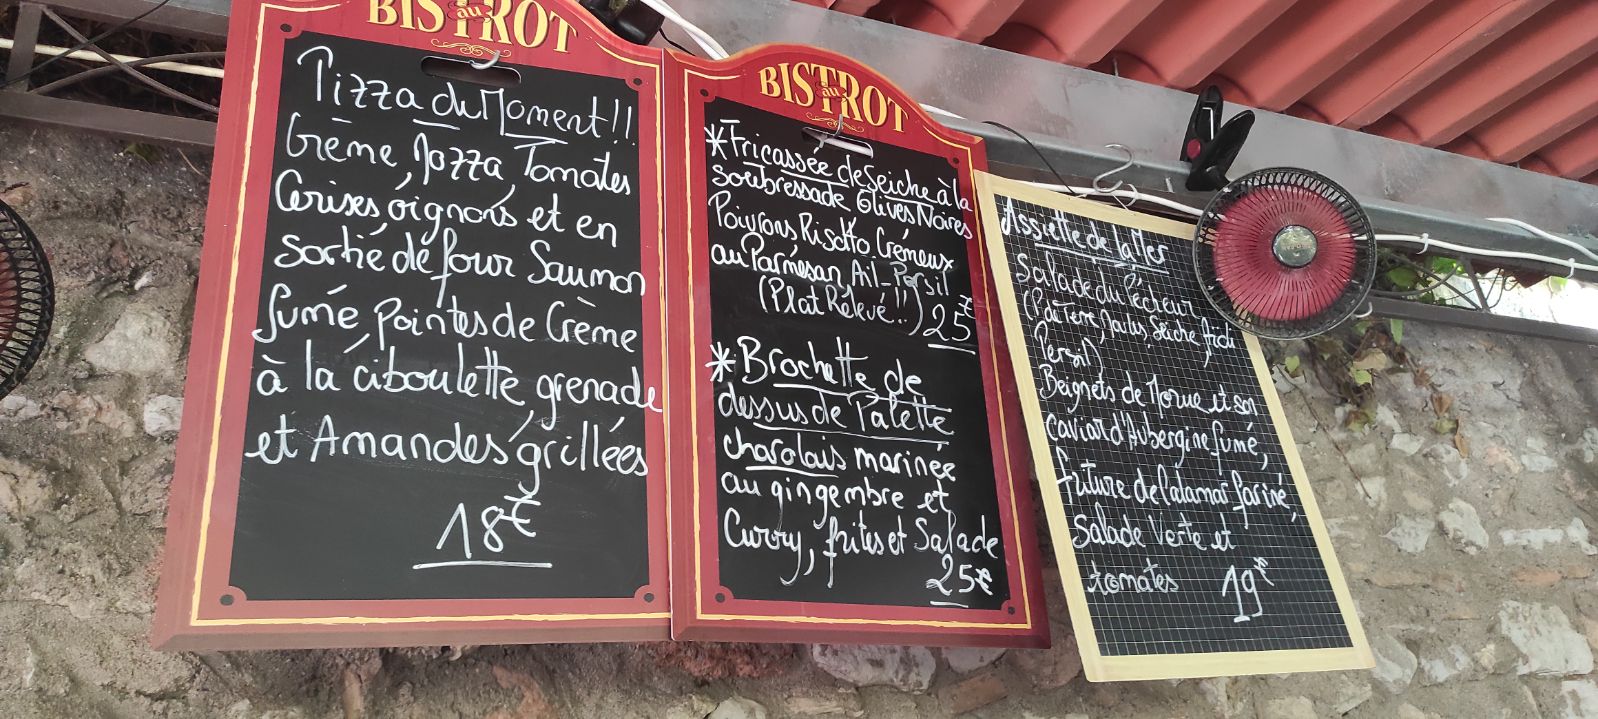 BISTROT
au
Pizza du Moment!!
Crème, Mozza, Tomates
Cerises, oignons et en
sortie de four Saumon
fumé, pointes de Crème
à la ciboulette, grenade
et Amandes grillées
18€
BISTROT
au
*Fricassée de Seiche à la
soubressade Olives Noires
Poivrons Risotto Crémeux
au Parmesan, Ail_Persil
(Plat Relevé!!) 25€
*Brochette de
dessus de Palette
charolais marinée
au gingembre et
Curry, frites et Salade
25€
Assiette de la Mer
Salade du Pécheur
Seiche,
Persil)
Beignets de Morue et son
caviar d'Aubergine fumé,
friture de Calamar fariné,
Salade Verte et
tomates 19€